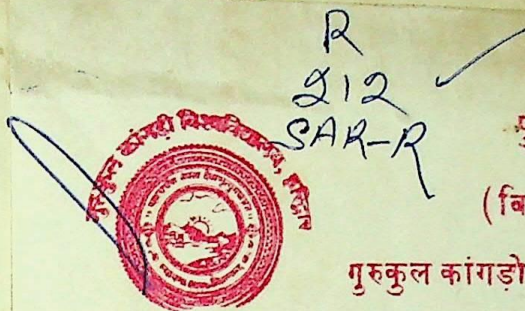 R
212
SAR-R
गुरुकुल कांगड़ी विश्वविद्यालय, हरिद्वार
(वि
गुरुकुल कांगड़ी